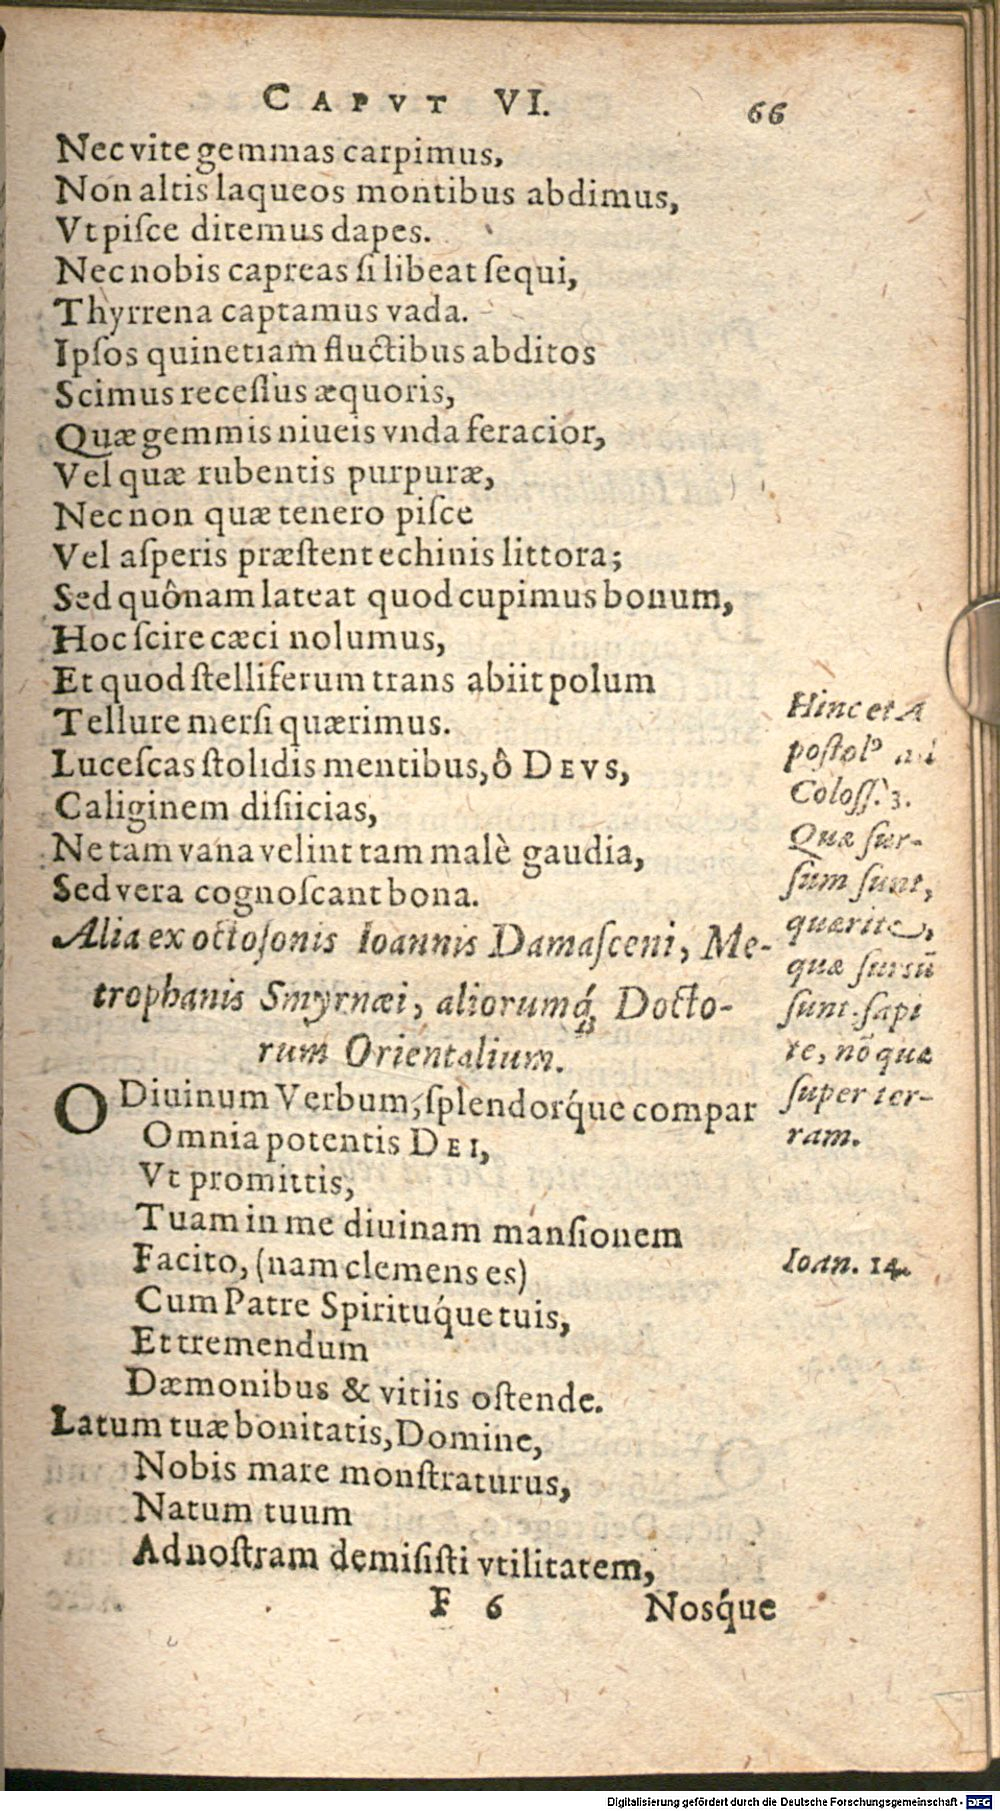 CAPVT VI. 66
Nec vite gemmas carpimus,
Non altis laqueos montibus abdimus,
Vt piſce ditemus dapes.
Nec nobis capreas ſi libeat ſequi,
Thyrrena captamus vada.
Ipſos quinetiam fluctibus abditos
Scimus receſſus æquoris,
Quæ gemmis niueis vnda feracior,
Vel quæ rubentis purpuræ,
Nec non quæ tenero piſce
Vel aſperis præſtent echinis littora;
Sed quônam lateat quod cupimus bonum,
Hoc ſcire cæci nolumus,
Et quod ſtelliferum trans abiit polum
Tellure merſi quærimus.
Luceſcas ſtolidis mentibus, ô DEVS,
Caliginem diſiicias,
Ne tam vana velint tam malè gaudia,
Sed vera cognoſcant bona.
Alia ex octoſonis Ioannis Damaſceni, Me-
trophanis Smyrnæi, aliorumq́; Docto-
rum Orientalium.
O Diuinum Verbum, ſplendorq́ue compar
Omnia potentis DEI,
Vt promittis,
Tuam in me diuinam manſionem
Facito, (nam clemens es)
Cum Patre Spirituq́ue tuis,
Et tremendum
Dæmonibus & vitiis oſtende.
Latum tuæ bonitatis, Domine,
Nobis mare monſtraturus,
Natum tuum
Ad noſtram demiſiſti vtilitatem,
F 6 Noſq́ue
Hinc et A
poſtolꝰ ad
Coloſſ. 3.
Quæ ſur-
ſum ſunt,
quærite,
quæ ſursū
ſunt ſapi
te, nō quæ
ſuper ter-
ram.
Ioan. 14.
Digitalisierung gefördert durch die Deutsche Forschungsgemeinschaft - DFG